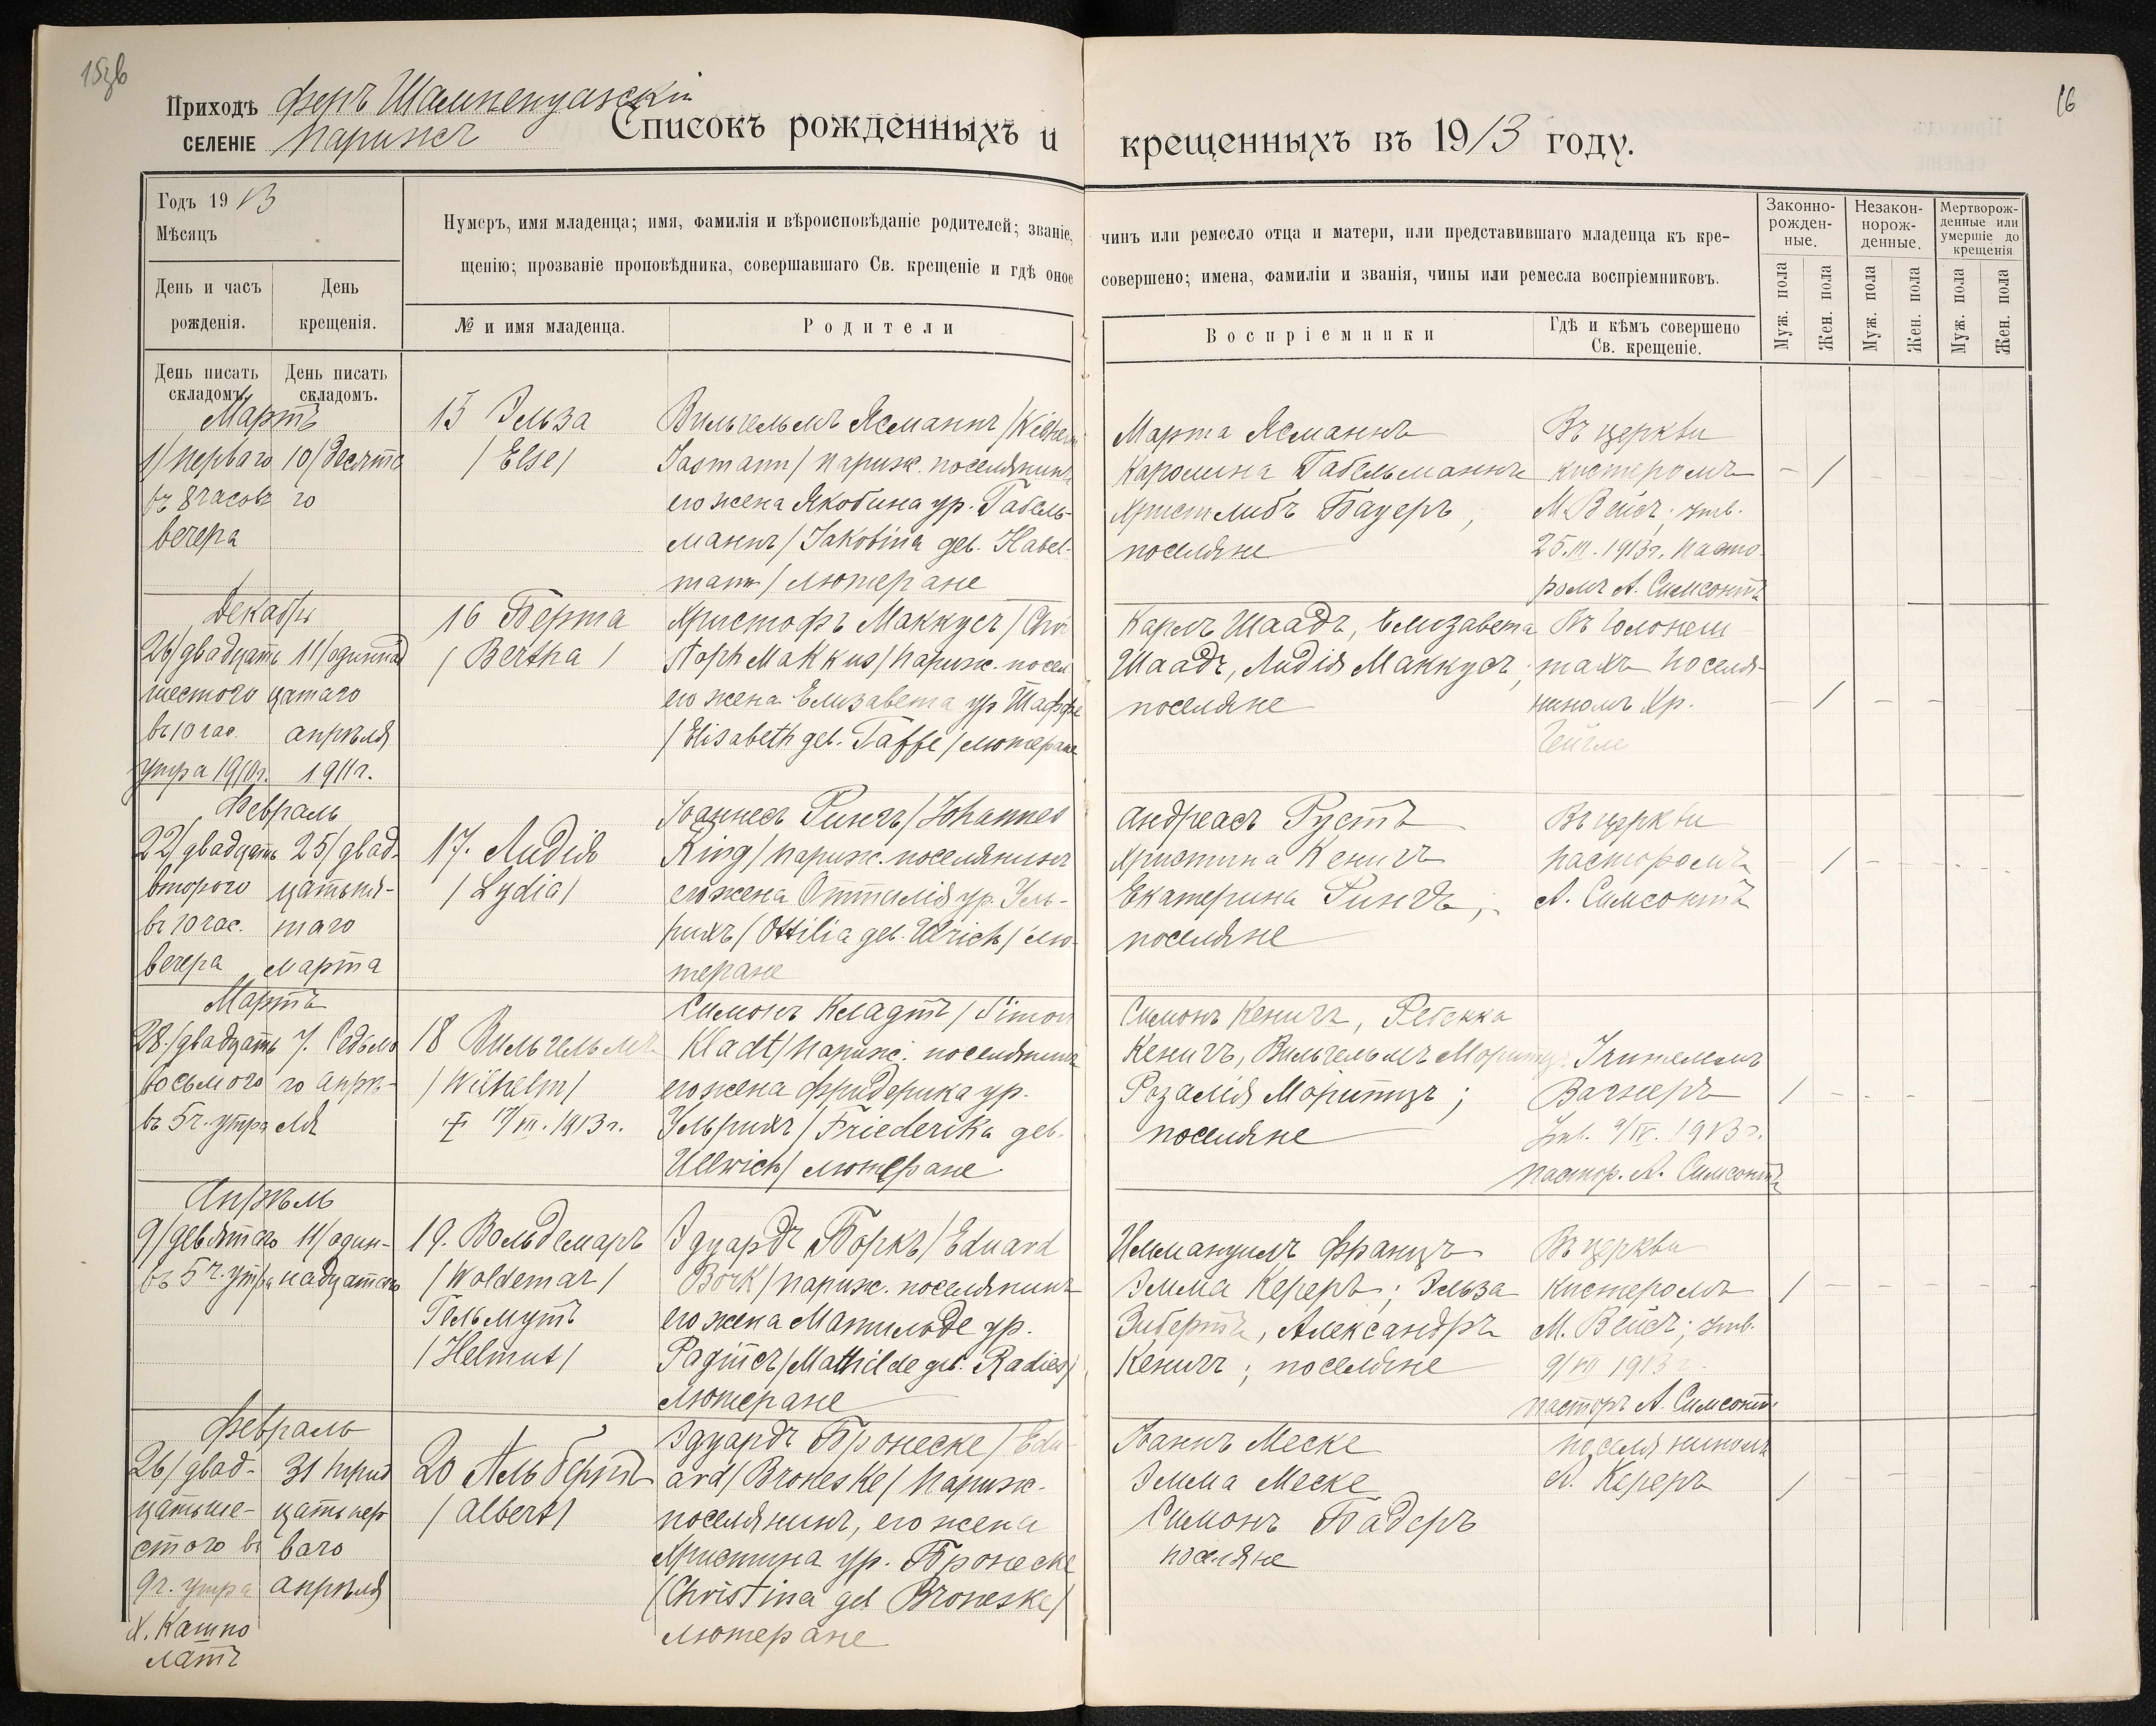 15зв
16
Приходъ феръ Шампенуазскій
СЕЛЕНІЕ Парижъ
Списокъ рожденныхъ и крещенныхъ въ 1913 году.
Годъ 1913
Мѣсяцъ
День и часъ рожденія.
День крещенія.
Нумеръ, имя младенца; имя, фамилія и вѣроисповѣданіе родителей; званіе, чинъ или ремесло отца и матери, или представившаго младенца къ кре-
щенію; прозваніе проповѣдника, совершавшаго Св. крещеніе и гдѣ оное совершено; имена, фамиліи и званія, чины или ремесла воспріемниковъ.
№ и имя младенца.
Родители
Воспріемники
Гдѣ и кѣмъ совершено
Св. крещеніе.
Законно-
рожден-
ные.
Незакон-
норож-
денные.
Мертворож-
денные или
умершіе до
крещенія
Муж. пола
Жен. пола
Муж. пола
Жен. пола
Муж. пола
Жен. пола
День писать
складомъ.
День писать
складомъ.
Мартъ
1/перваго
въ 8 часовъ
вечера
10/десята
го
15 Эльза
/Else/
Вильгельмъ Ясманнъ /Wilhelm
Jasmann/ париж. поселянинъ
его жена Якобина ур. Габель-
маннъ/Jakobina geb. Habel-
mann/ лютеране
Марта Ясманнъ
Каролина Габельманнъ
Христлибъ Бауеръ,
поселяне
Въ церкви
кистеромъ
М. Вейсъ; утв.
25.III.1913г. пасто-
ромъ А. Симсонъ
– / – – – –
Декабрь
26/двадцать
шестого
въ 10 час.
утра 1910г.
11/одиннад
цатаго
апрѣля
1911г.
16 Берта
/Bertha/
Христофъ Маккусъ /Chri
stoph Makkus/париж. посел
его жена Елизавета ур Таффе
/Elisabeth geb. Taffe/лютеране
Карлъ Шаадъ, Елизавета
Шаадъ, Лидія Маккусъ;
поселяне
поселя-
ниномъ Хр.
– / – – –
Февраль
22/двадцать
второго
въ 10 час.
вечера
25/двад-
цатьпя-
таго
марта
17. Лидія
/Lydia/
Іоаннесъ Рингъ/Johannes
Ring/париж. поселянинъ
его жена Оттилія ур. Уль-
рихъ/Ottilia geb. Ulrich/лю-
теране
Андреасъ Рустъ
Христина Кенигъ
Екатерина Рингъ;
поселяне
Въ церкви
пасторомъ
А. Симсонъ
– / – – – –
Мартъ
28./двадцать
восьмого
въ 5ч. утра
7. Седьмо
го апрѣ-
ля
18 Вильгельмъ
/Wilhelm/
† 17/III.1913г.
Симонъ Кладтъ /Simon
Kladt/париж. поселянинъ
его жена Фридерика ур.
Ульрихъ/Friederika geb.
Ullrich/ лютеране
Симонъ Кенигъ, Ребекка
Кенигъ, ВильгельмъМоритцъ
Розалія Моритцъ;
поселяне
Учителемъ
Вагнеръ
утв. 9/IV.1913г.
пастор. А. Симсонъ
/ – – – – –
Апрѣль
9/девятаго
въ 5 ч. утра
11/один-
надцатаго
19. Вольдемаръ
/Woldemar/
Гельмутъ
/Helmut/
Эдуардъ Боркъ/Eduard
Bork/париж. поселянинъ
его жена Матильде ур.
Радисъ/Mathilde geb. Radies/
лютеране
Иммануилъ Францъ
Эмма Кереръ; Эльза
Зибертъ, Александръ
Кенигъ; поселяне
Въ церкви
кистеромъ
М. Вейсъ; утв.
9/VII 1913 г.
пасторъ А. Симсонъ
/ – – – – –
Февраль
26/двад-
цатьше-
стого въ
9ч. утра
31 трид
цатьпер
ваго
апрѣля
20 Альбертъ
/Albert/
Эдуардъ Бронеске /Edu-
ard/Broneske/ париж.
поселянинъ, его жена
Христина ур. Бронеске
/Christina geb Broneske/
лютеране
Іоаннъ Меске
Эмма Меске
Симонъ Бадеръ
поселяне
поселяниномъ
А. Кереръ
/ – – – –